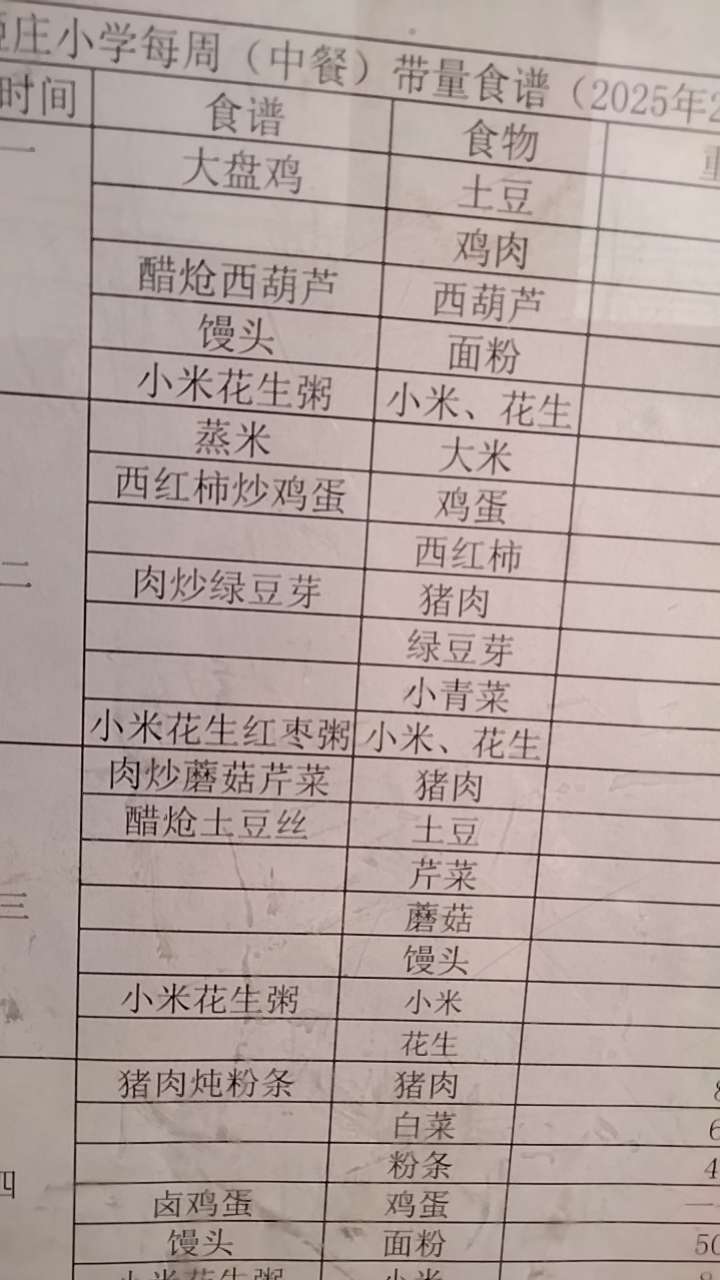 庄小学每周（中餐）带量食谱（2025年2
时间 食谱 食物
一 大盘鸡 土豆
鸡肉
醋炝西葫芦 西葫芦
馒头 面粉
小米花生粥 小米、花生
蒸米 大米
西红柿炒鸡蛋 鸡蛋
西红柿
二 肉炒绿豆芽 猪肉
绿豆芽
小青菜
小米花生红枣粥 小米、花生
肉炒蘑菇芹菜 猪肉
醋炝土豆丝 土豆
芹菜
三 蘑菇
馒头
小米花生粥 小米
花生
猪肉炖粉条 猪肉
白菜 6
粉条 4
四 卤鸡蛋 鸡蛋 一
馒头 面粉 50
小米花生粥 小米